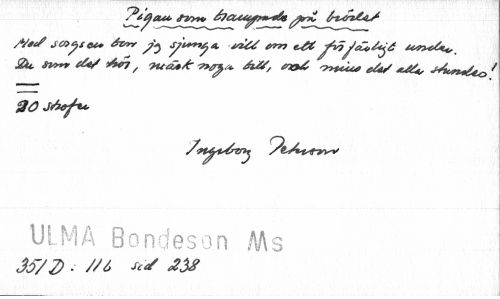 Pigan som trampade på brödet
Med sorgsen ton jag sjunga vill om ett förfärligt under.
Du som det hör, märk noga till, och mins det alla stunder!
20 strofer
Ingeborg Peterson
ULMA Bondeson Ms
351 D: 11 b sid 238